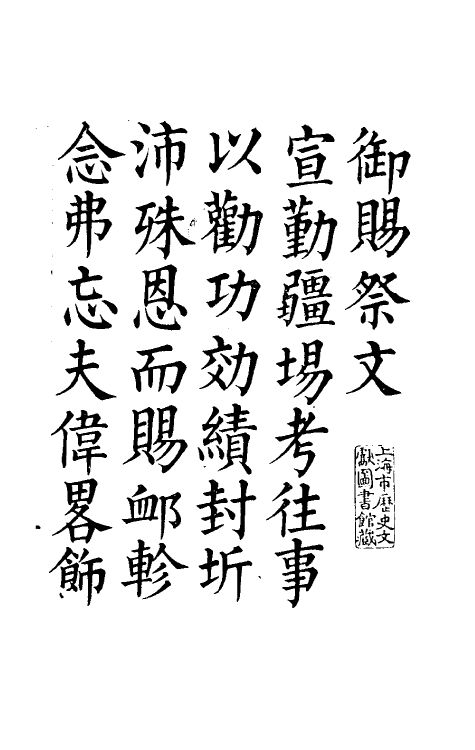 御賜祭文
宣勤疆場考往事
以勸功効績封圻
沛殊恩而賜䘏軫
念弗忘夫偉畧飾
上海市歷史文
獻圖書館藏